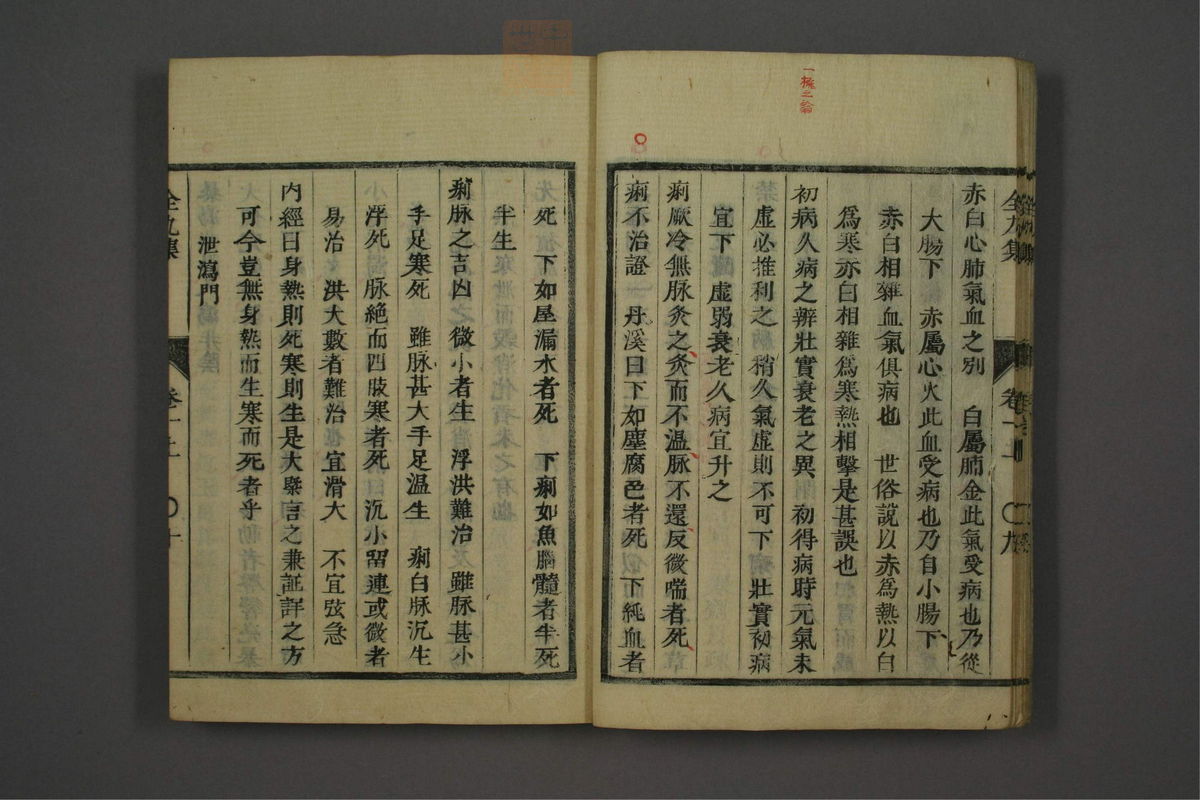 赤白心肺氣血之別　白屬肺金此氣受病也乃從
大腸下　赤屬心火此血受病也乃自小腸下
赤白相雜血氣俱病也　世俗說以赤爲熱以白
爲寒亦曰相雜爲寒熱相擊是甚誤也
初病久病之辨壯實衰老之異　初得病時元氣未
虛必推利之　稍久氣虛則不可下　壯實初病
宜下　虛弱衰老久病宜升之
痢厥冷無脉灸之灸而不溫脉不還反微喘者死
痢不治證　丹溪曰下如塵腐色者死　下純血者
全九集　卷十上　〇九
死　下如屋漏水者死　下痢如魚腦髓者半死
半生
痢脉之吉凶　微小者生　浮洪難治　雖脉甚小
手足寒死　雖脉甚大手足溫生　痢白脉沉生
浮死　脉絕而四肢寒者死　沉小留連或微者
易治　洪大數者難治　宜滑大　不宜弦急
内經曰身熱則死寒則生是大槩言之兼証詳之方
可今豈無身熱而生寒而死者乎
泄瀉門
全九集　卷十上　〇十
8